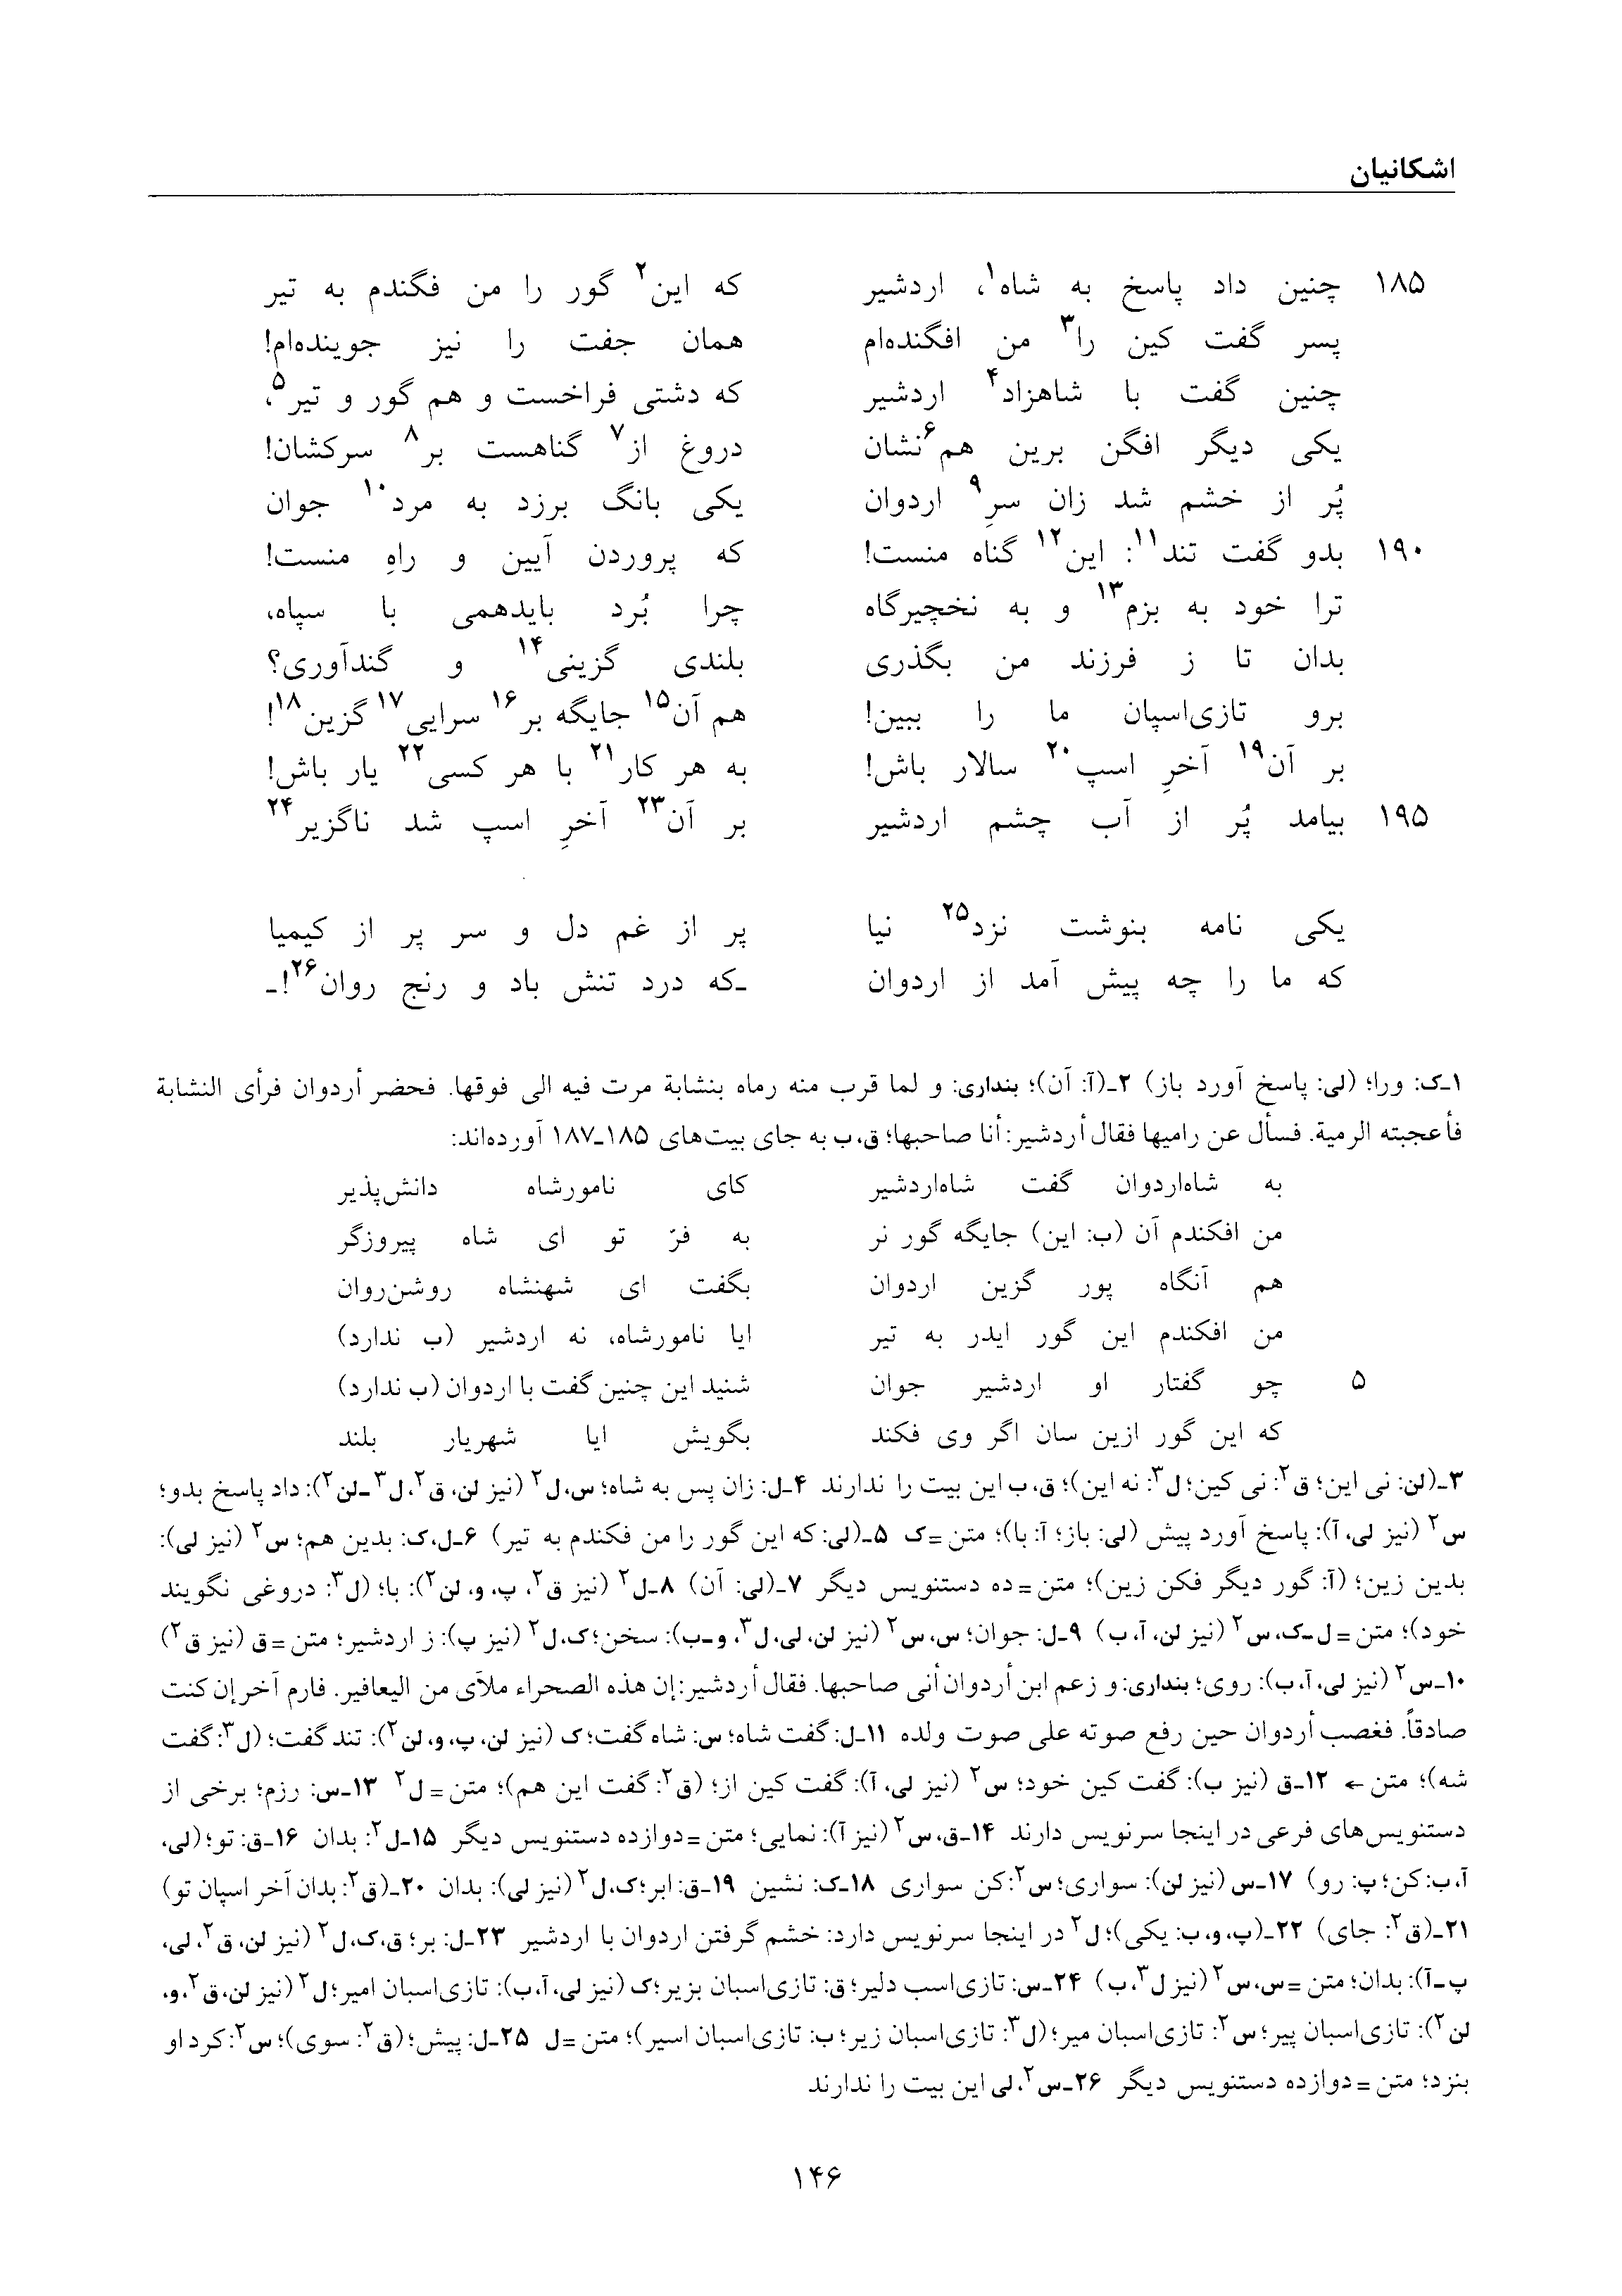 اشکانیان
۱۸۵ چنین داد پاسخ به شاه۱، اردشیر که این۲ گور را من فگندم به تیر
پسر گفت کین را۳ من افگنده‌ام همان جفت را نیز جوینده‌ام!
چنین گفت با شاهزاد۴ اردشیر که دشتی فراخست و هم گور و تیر۵،
یکی دیگر افگن برین هم۶نشان دروغ از۷ گناهست بر۸ سرکشان!
پُر از خشم شد زان سرِ۹ اردوان یکی بانگ برزد به مرد۱۰ جوان
۱۹۰ بدو گفت تند۱۱: این۱۲ گناه منست! که پروردن آیین و راهِ منست!
ترا خود به بزم۱۳ و به نخچیرگاه چرا بُرد بایدهمی با سپاه،
بدان تا ز فرزند من بگذری بلندی گزینی۱۴ و گندآوری؟
برو تازی‌اسپان ما را ببین! هم آن۱۵ جایگه بر۱۶ سرایی۱۷ گزین۱۸!
بر آن۱۹ آخرِ اسپ۲۰ سالار باش! به هر کار۲۱ با هر کسی۲۲ یار باش!
۱۹۵ بیامد پُر از آب چشم اردشیر بر آن۲۳ آخرِ اسپ شد ناگزیر۲۴
یکی نامه بنوشت نزد۲۵ نیا پر از غم دل و سر پر از کیمیا
که ما را چه پیش آمد از اردوان ـکه درد تنش باد و رنج روان۲۶!ـ
۱ـک: ورا؛ (لی: پاسخ آورد باز) ۲ـ(آ: آن)؛ بنداری: و لما قرب منه رماه بنشابة مرت فیه الی فوقها. فحضر أردوان فرأی النشابة
فأعجبته الرمیة. فسأل عن رامیها فقال أردشیر: أنا صاحبها؛ ق، ب به جای بیت‌های ۱۸۵ـ۱۸۷ آورده‌اند:
به شاه‌اردوان گفت شاه‌اردشیر کای نامورشاه دانش‌پذیر
من افکندم آن (ب: این) جایگه گور نر به فرّ تو ای شاه پیروزگر
هم آنگاه پور گزین اردوان بگفت ای شهنشاه روشن‌روان
من افکندم این گور ایدر به تیر ایا نامورشاه، نه اردشیر (ب ندارد)
۵ چو گفتار او اردشیر جوان شنید این چنین گفت با اردوان (ب ندارد)
که این گور ازین سان اگر وی فکند بگویش ایا شهریار بلند
۳ـ(لن: نی این؛ ق۲: نی کین؛ ل۳: نه این)؛ ق، ب این بیت را ندارند ۴ـل: زان پس به شاه؛ س، ل۲ (نیز لن، ق۲، ل۳ـلن۲): داد پاسخ بدو؛
س۲ (نیز لی، آ): پاسخ آورد پیش (لی: باز؛ آ: با)؛ متن=ک ۵ـ(لی: که این گور را من فکندم به تیر) ۶ـل، ک: بدین هم؛ س۲ (نیز لی):
بدین زین؛ (آ: گور دیگر فکن زین)؛ متن=ده دستنویس دیگر ۷ـ(لی: آن) ۸ـل۲ (نیز ق۲، پ، و، لن۲): با؛ (ل۳: دروغی نگویند
خود)؛ متن=ل‌ـک، س۲ (نیز لن، آ، ب) ۹ـل: جوان؛ س، س۲ (نیز لن، لی، ل۳، و‌ـب): سخن؛ ک، ل۲ (نیز پ): ز اردشیر؛ متن=ق (نیز ق۲)
۱۰ـس۲ (نیز لی، آ، ب): روی؛ بنداری: و زعم ابن أردوان أنی صاحبها. فقال أردشیر: إن هذه الصحراء ملآی من الیعافیر. فارم آخر إن کنت
صادقاً. فغصب أردوان حین رفع صوته علی صوت ولده ۱۱ـل: گفت شاه؛ س: شاه گفت؛ ک (نیز لن، پ، و، لن۲): تند گفت؛ (ل۳: گفت
شه)؛ متن ← ۱۲ـق (نیز ب): گفت کین خود؛ س۲ (نیز لی، آ): گفت کین از؛ (ق۲: گفت این هم)؛ متن=ل۲ ۱۳ـس: رزم؛ برخی از
دستنویس‌های فرعی در اینجا سرنویس دارند ۱۴ـق، س۲ (نیز آ): نمایی؛ متن=دوازده دستنویس دیگر ۱۵ـل۲: بدان ۱۶ـق: تو؛ (لی،
آ، ب: کن؛ پ: رو) ۱۷ـس (نیز لن): سواری؛ س۲: کن سواری ۱۸ـک: نشین ۱۹ـق: ابر؛ ک، ل۲ (نیز لی): بدان ۲۰ـ(ق۲: بدان آخر اسپان تو)
۲۱ـ(ق۲: جای) ۲۲ـ(پ، و، ب: یکی)؛ ل۲ در اینجا سرنویس دارد: خشم گرفتن اردوان با اردشیر ۲۳ـل: بر؛ ق، ک، ل۲ (نیز لن، ق۲، لی،
پ‌ـآ): بدان؛ متن=س، س۲ (نیز ل۳، ب) ۲۴ـس: تازی‌اسب دلیر؛ ق: تازی‌اسبان بزیر؛ ک (نیز لی، آ، ب): تازی‌اسبان امیر؛ ل۲ (نیز لن، ق۲، و،
لن۲): تازی‌اسبان پیر؛ س۲: تازی‌اسبان میر؛ (ل۳: تازی‌اسبان زیر؛ ب: تازی‌اسبان اسیر)؛ متن=ل ۲۵ـل: پیش؛ (ق۲: سوی)؛ س۲: کرد او
بنزد؛ متن=دوازده دستنویس دیگر ۲۶ـس۲، لی این بیت را ندارند
۱۴۶